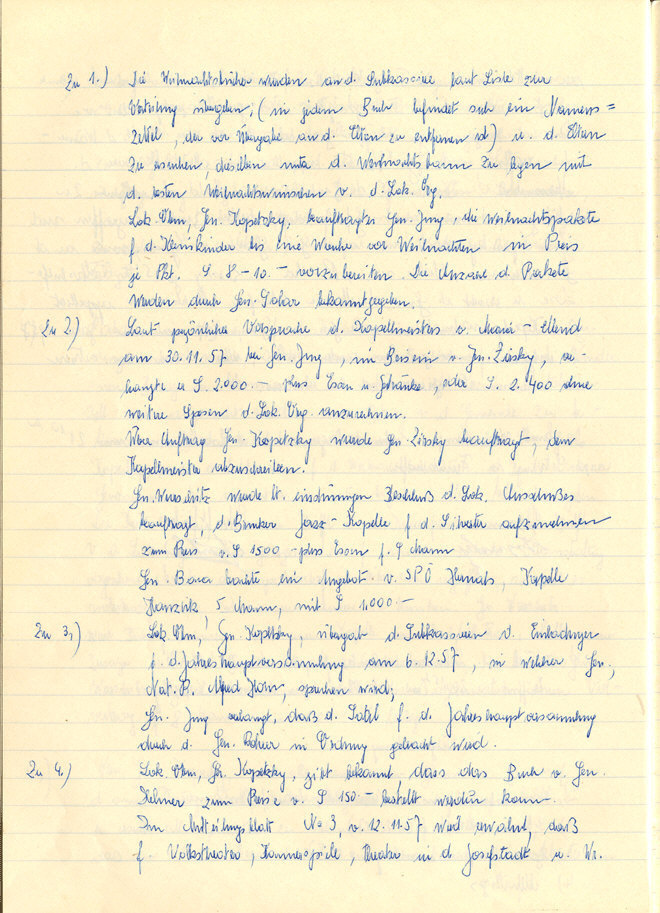 Zu 1.) Die Weihnachtsbücher wurden an d. Subkassiere laut Liste zur
Verteilung übergeben, (in jedem Buch befindet sich ein Namens=
Zettel, der vor Übergabe an d. Eltern zu entfernen ist) u. d. Eltern
zu ersuchen, dieselben unter d. Weihnachtsbaum zu legen mit
d. besten Weihnachtswünschen v. d. Lok. Org.
Lok. Obm, Gen. Kopetzky, beauftragte Gen. Jung, die Weihnachtspakete
f. d. Kleinkinder bis eine Woche vor Weihnachten im Preis
je Pkt. S 8-10.- vorzubereiten. Die Anzahl d. Pakete
werden durch Gen. bekanntgegeben.
Zu 2.) Laut persönlicher Vorsprache d. Kapellmeisters v. Maria-Ellend
am 30.11.57 bei Gen. Jung, im Beisein v. Gen. Zirsky, ver-
langte er S. 2.000.- plus Essen u. Getränke, oder S. 2.400 ohne
weitere Spesen d. Lok. Org. anzurechnen.
Über Auftrag Gen. Kopetzky wurde Gen. Zirsky beauftragt, dem
Kapellmeister abzuschreiben.
Gen. wurde lt. einstimmigen Beschluß d. Lok. Ausschußes
beauftragt, d. Jazz-Kapelle f. d. Silvester aufzunehmen
zum Preis v. S 1500 - plus Essen f. 9 Mann
Gen. brachte ein Angebot v. SPÖ Hernals, Kapelle
5 Mann, mit S 1,000.-
Zu 3.) Lok. Obm, Gen. Kopetzky, übergab d. Subkassieren d. Einladungen
f. d. Jahreshauptversammlung am 6.12.57, in welcher Gen.,
Nat. R. Alfred Horn, sprechen wird;
Gen. Jung verlangt, daß d. Saal f. d. Jahreshauptversammlung
durch d. Gen. in Ordnung gebracht wird.
Zu 4.) Lok. Obm, Gen. Kopetzky, gibt bekannt dass das Buch v. Gen.
zum Preise v. S 150.- bestellt werden kann.
Im Mitteilungsblatt No 3, v. 12.11.57 wird erwähnt, daß
f. Volkstheater, Kammerspiele, Theater in d Josefstadt u. Wr.